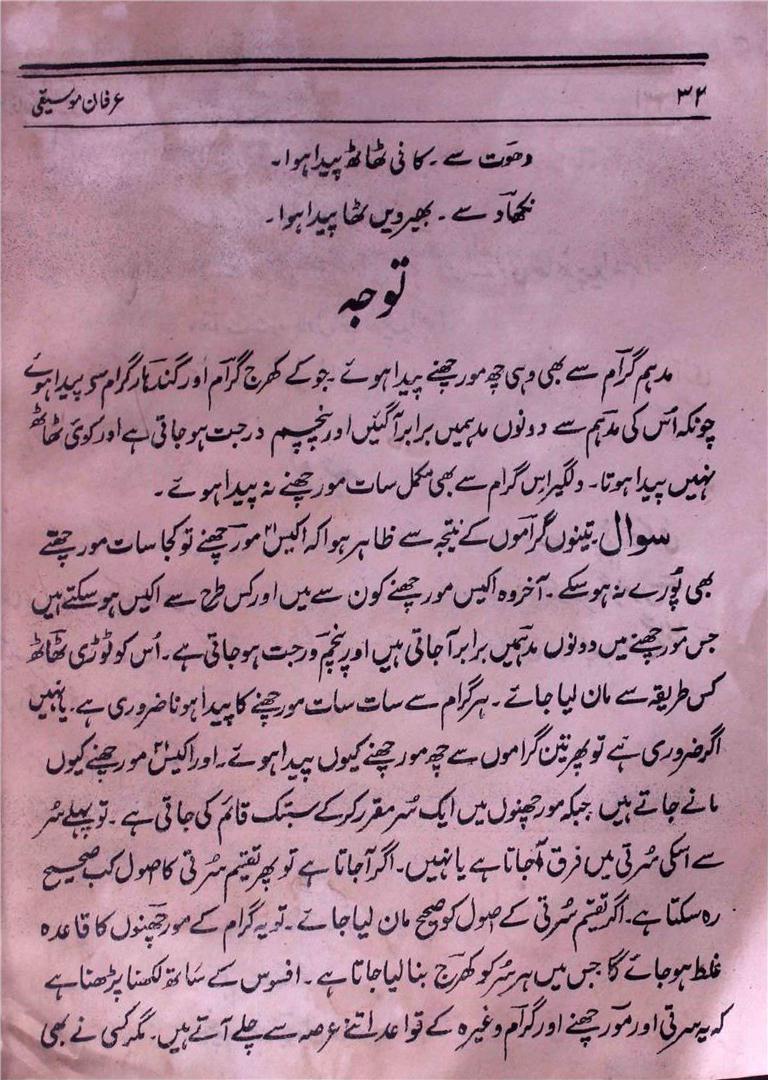 ۳۲ عرفان موسیقی
دھوت سے ۔ کافی ٹھاٹھ پیدا ہوا ۔
نکھاد سے ۔ بھیرویں ٹھا پیدا ہوا ۔
توجہ
مدہم گرام سے بھی وہی چھ مورچھنے پیدا ہوئے ۔ جو کے کھرج گرام اور گندھار گرام سے پیدا ہوئے
چونکہ اُس کی مدہم سے دونوں مدہمیں برابر آگئیں اور پنچم درجت ہو جاتی ہے اور کوئی ٹھاٹھ
نہیں پیدا ہوتا ۔ دلگیر اِس گرام سے بھی مکمل سات مورچھنے نہ پیدا ہوئے ۔
سوال ۔ تینوں گراموں کے نتیجہ سے ظاہر ہوا کہ اکیس ۲۱ مورچھنے تو کجا سات مورچھنے
بھی پُورے نہ ہو سکے ۔ آخر وہ اکیس مورچھنے کون سے ہیں اور کس طرح سے اکیس ہو سکتے ہیں
جس مورچھنے میں دونوں مدہمیں برابر آ جاتی ہیں اور پنچم ورجت ہو جاتی ہے ۔ اُس کو ٹوڑی ٹھاٹھ
کس طریقہ سے مان لیا جائے ۔ ہر گرام سے سات سات مورچھنے کا پیدا ہونا ضروری ہے ۔ یا نہیں
اگر ضروری ہے تو پھر تین گراموں سے چھ مورچھنے کیوں پیدا ہوئے ۔ اور اکیس ۲۱ مورچھنے کیوں
مانے جاتے ہیں جبکہ مورچھنوں میں ایک سُر مقرر کر کے سبتک قائم کی جاتی ہے ۔ تو پہلے سُر
سے اسکی سُرتی میں فرق آ جاتا ہے یا نہیں ۔ اگر آ جاتا ہے تو پھر تقیتم سُرتی کا اصول کب صحیح
رہ سکتا ہے ۔ اگر تقیتم سُرتی کے اصول کو صحیح مان لیا جائے ۔ تو یہ گرام کے مورچھنوں کا قاعدہ
غلط ہو جائے گا جس میں ہر سُر کو کھرج بنا لیا جاتا ہے ۔ افسوس کے ساتھ لکھنا پڑھتا ہے
کہ یہ سُرتی اور مورچھنے اور گرام وغیرہ کے قواعد اتنے عرصہ سے چلے آتے ہیں ۔ مگر کسی نے بھی